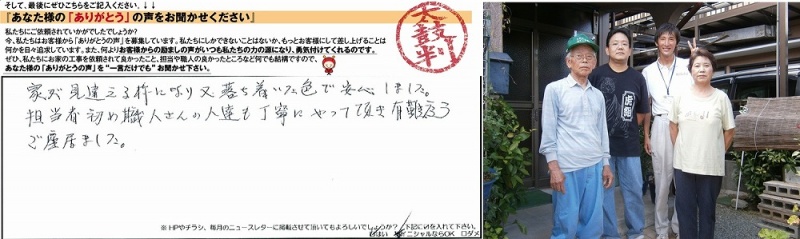 そして、最後にぜひこちらをご記入ください。↓↓↓
『あなた様の「ありがとう」の声をお聞かせください』
私たちにご依頼されていかがでしたでしょうか?
今、私たちはお客様から「ありがとうの声」を募集しています。私たちにしかできないことはないか、もっとお客様にして差し上げることは
何かを日々追求しています。また、何よりお客様からの励ましの声がいつも私たちの力の源になり、勇気付けてくれるのです。
ぜひ、私たちにお家の工事を依頼されて良かったこと、担当や職人の良かったところなど何でも結構ですので、
あなた様の「ありがとうの声」を“一言だけでも”お聞かせ下さい。
太鼓判
家が見違える様になり又落ち着いた色で安心しました。
担当者初め職人さんの人達も丁寧にやって頂き有難とう
ご座居ました。
※HPやチラシ、毎月のニュースレターに掲載させて頂いてもよろしいでしょうか? 下記に○を入れて下さい。
はい イニシャルならOK ロダメ